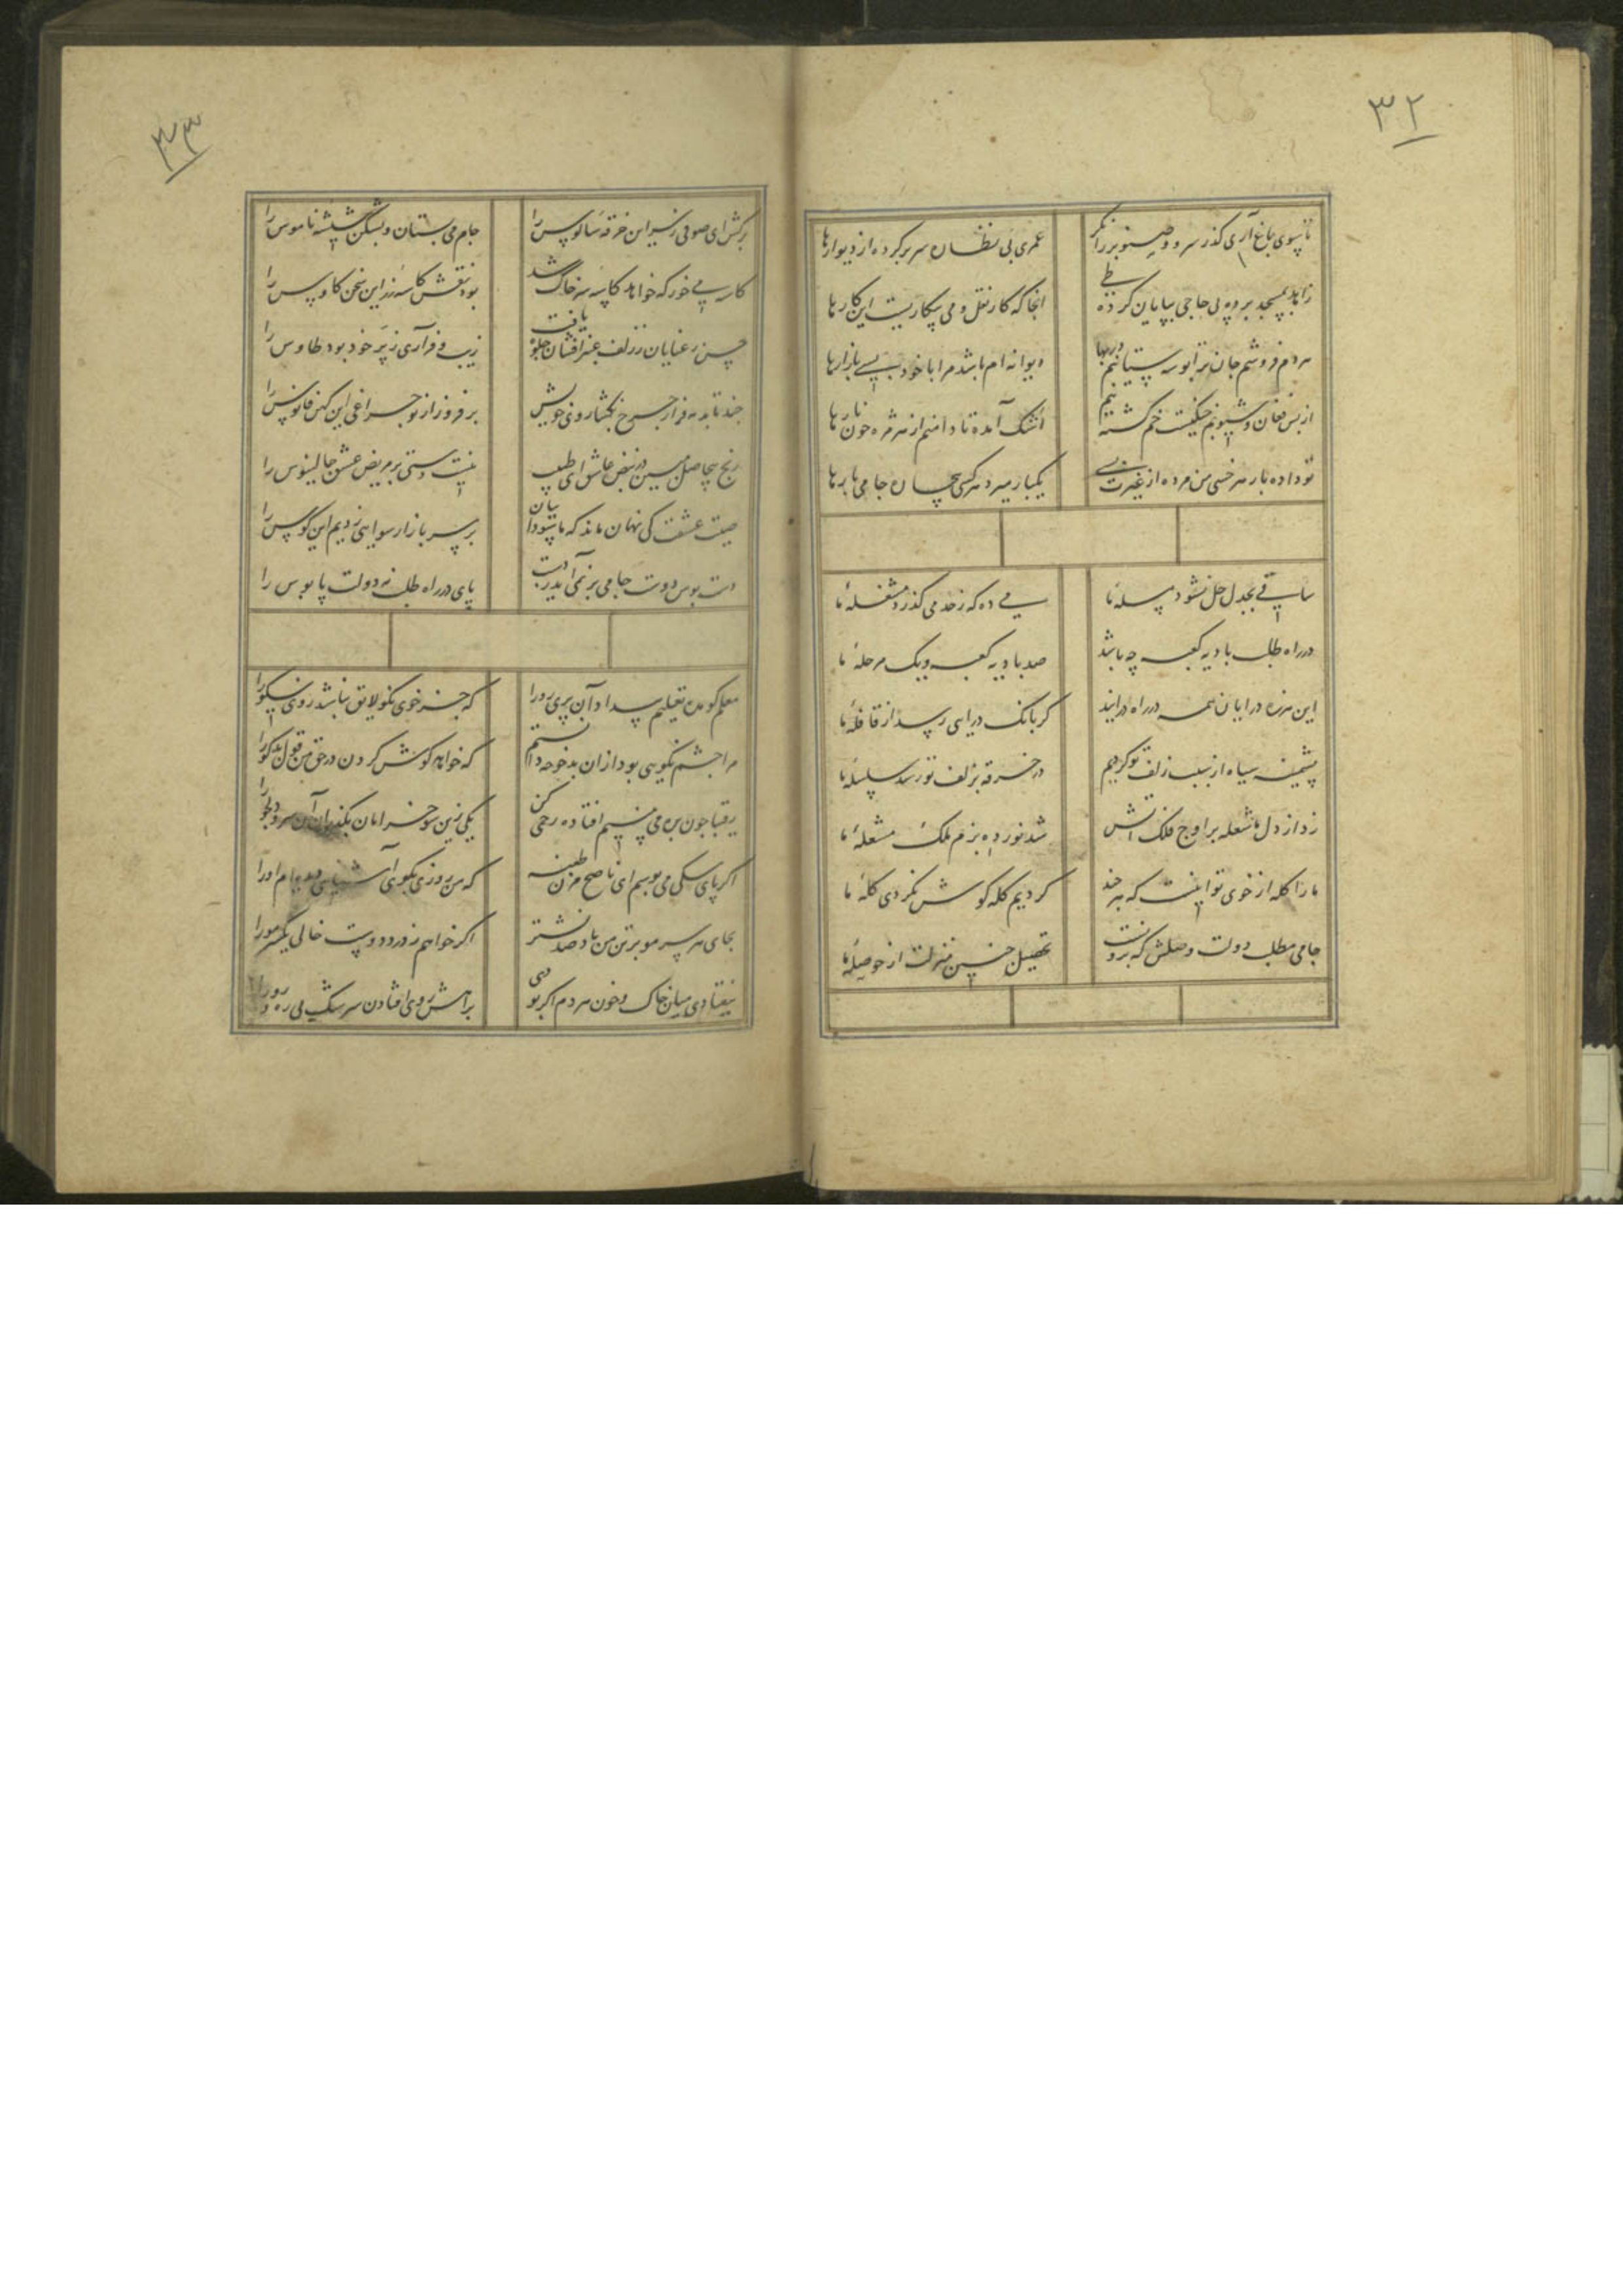 ۳۲
تا سوی باغ آری گذر سرو و صنوبر را نگر
عمری پی نظاره سر بر کرده از دیوارها
زاهد بمسجد برده پی حاجی بیابان کرده طی
انجا که کار نقل و می بیکاریست این کارها
هر دم فروشم جان ترا بوسه ستانم در بها
دیوانه ام باشد مرا با خود بسی بازارها
از بس فغان و شیونم چنگیست خم گشته تنم
اشک آمده تا دامنم از هر مژه چون تارها
تو داده بار هر خسی من مرده از غیرت بسی
یکبار میرد هر کسی بیچاره جامی بارها
ساقی بجدل حل نشود مسله ما
می ده که ز حد می گذرد مشغله ما
در راه طلب بادیه کعبه چه باشد
صد بادیه کعبه و یک مرحله ما
این هرزه درایان همه در راه درایند
گر بانگ درایی رسد از قافله ما
پشمینه سیاه از سبب زلف تو کردیم
در خرقه بزلف تو رسد سلسله ما
زد از دل ما شعله بر اوج فلک آتش
شد نورده بزم ملک مشعله ما
ما را گله از خوی تو اینست که هر چند
کردیم گله گوش نکردی گله ما
جامی مطلب دولت وصلش که برونست
تحصیل چنین منزلت از حوصله ما
۳۳
برکش ای صوفی ز سر این خرقه سالوس را
جام می بستان و بشکن شیشه ناموس را
کاسه می خور که خواهد کاسه سر خاک شد
بود نقش کاسه زر این سخن کاوس را
حسن رعنایان ز زلف عنبرافشان جلوه یافت
زیب و فر آری ز پر خود بود طاوس را
چند تابد مه فراز چرخ بگشا روی خویش
برفروز از نو چراغی این کهن فانوس را
رنج بیحاصل مبین در نبض عاشق ای طبیب
نیست دستی بر مریض عشق جالینوس را
صیت عشقت کی نهان ماند که ما شوداییان
بر سر بازار رسوایی زدیم این کوس را
دست بوس دوست جامی بر نمی آید ز دست
پای در راه طلب نه دولت پابوس را
معلم گو مده تعلیم بیداد آن پری رو را
که جز خوی نکو لایق نباشد روی نیکو را
مرا چشم نکویی بود از ان بدخو چه دانستم
که خواهد گوش کردن در حق من قول بدگو را
رقیبا چون بره می بینیم افتاده رحمی کن
یکی زین سو خرامان بگذران آن سرو دلجو را
اگر پای سگی می بوسم ای ناصح مزن طعنه
که من روزی بکوی آشنایی دیده ام او را
بجای هر سر مو بر تن من باد صد نشتر
اگر خواهم ز درد دوست خالی یک سر مو را
نیفتادی میان خاک و خون مردم اگر بودی
براهش روی افتادن سرشک بی ره و رو را